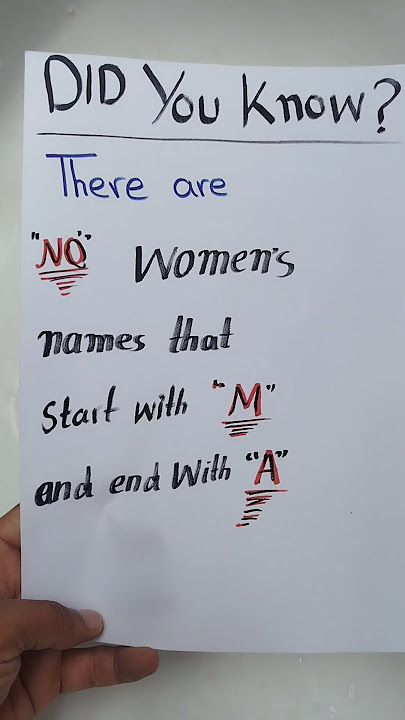 DID You Know?
There are
"NO" Women's
names that
Start with "M"
and end With "A"